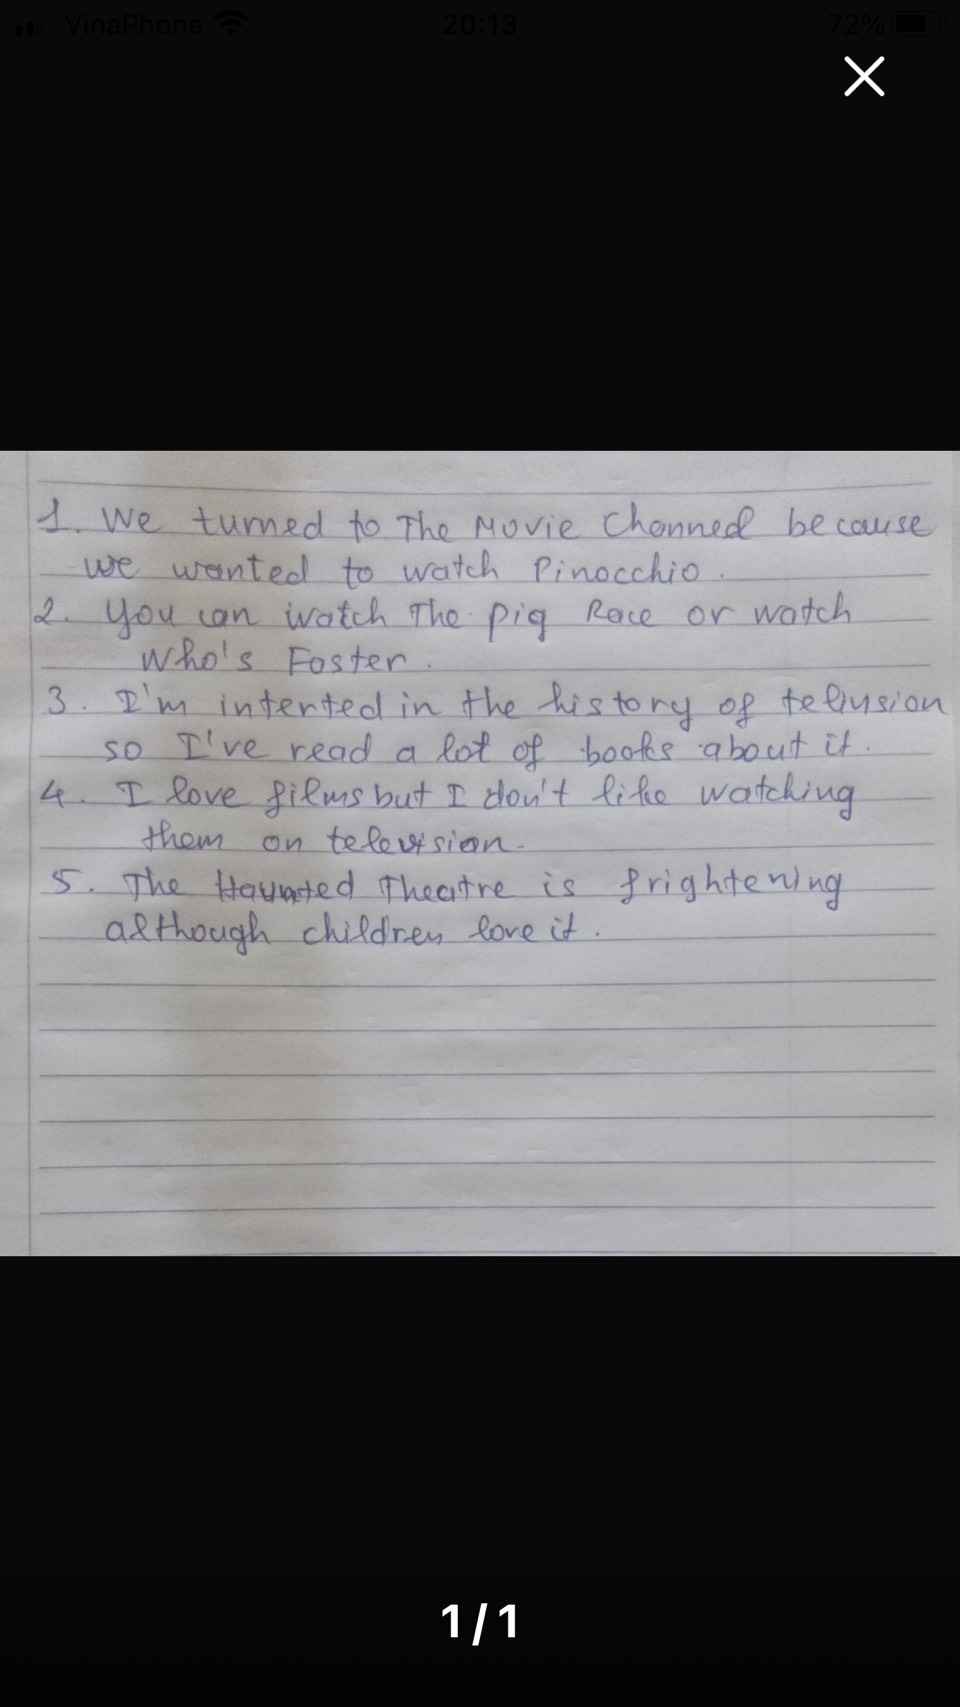 VinaPhone 20:13 72%
1. We turned to The Movie Channel because
we wanted to watch Pinocchio.
2. You can watch The Pig Race or watch
Who's Foster.
3. I'm interted in the history of telivsion
so I've read a lot of books about it.
4. I love films but I don't like watching
them on television.
5. The Haunted Theatre is frightening
although children love it.
1/1